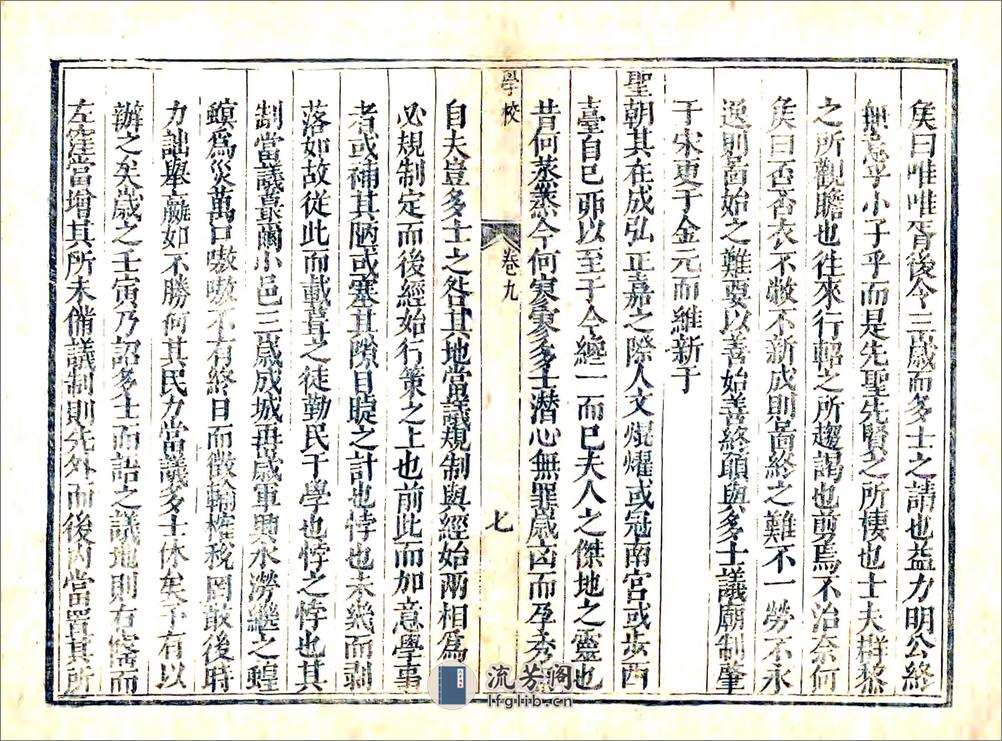 矦曰唯唯胥後今三歲而多士之請也益力明公終
無意乎小子乎而是先聖先賢之所棲也士夫群黎
之所觀瞻也往來行軺之所趨謁也剪焉不治奈何
矦曰否否衣不敝不新成則啚終之難不一勞不永
逸則啚始之難要以善始善終願與多士議廟制肇
于宋更于金元而維新于
聖朝其在成弘正嘉之際人文焜燿或冠南宮或步西
臺自已夘以至于今纔一而已夫人之傑地之靈也
昔何蒸蒸今何寥寥多士潛心無罪歲凶而孕秀
學校
卷九
七
自夫豈多士之咎其地當議規制與經始兩相爲
必規制定而後經始行策之上也前此而加意學事
者或補其陋或塞其隙目睫之計也悖也未幾而剥
落如故從此而載葺之徒勤民于學也悖之悖也其
制當議蕞爾小邑三歲成城再歲軍興水澇繼之蝗
螟爲災萬口嗷嗷不有終日而徵輸榷稅罔敢後時
力詘舉羸如不勝何其民力當議多士休矣予有以
辦之矣歲之壬寅乃詔多士而詰之議地則右窿而
左窪當增其所未備議制則先外而後內當置其所
流芳阁
lfglib.cn